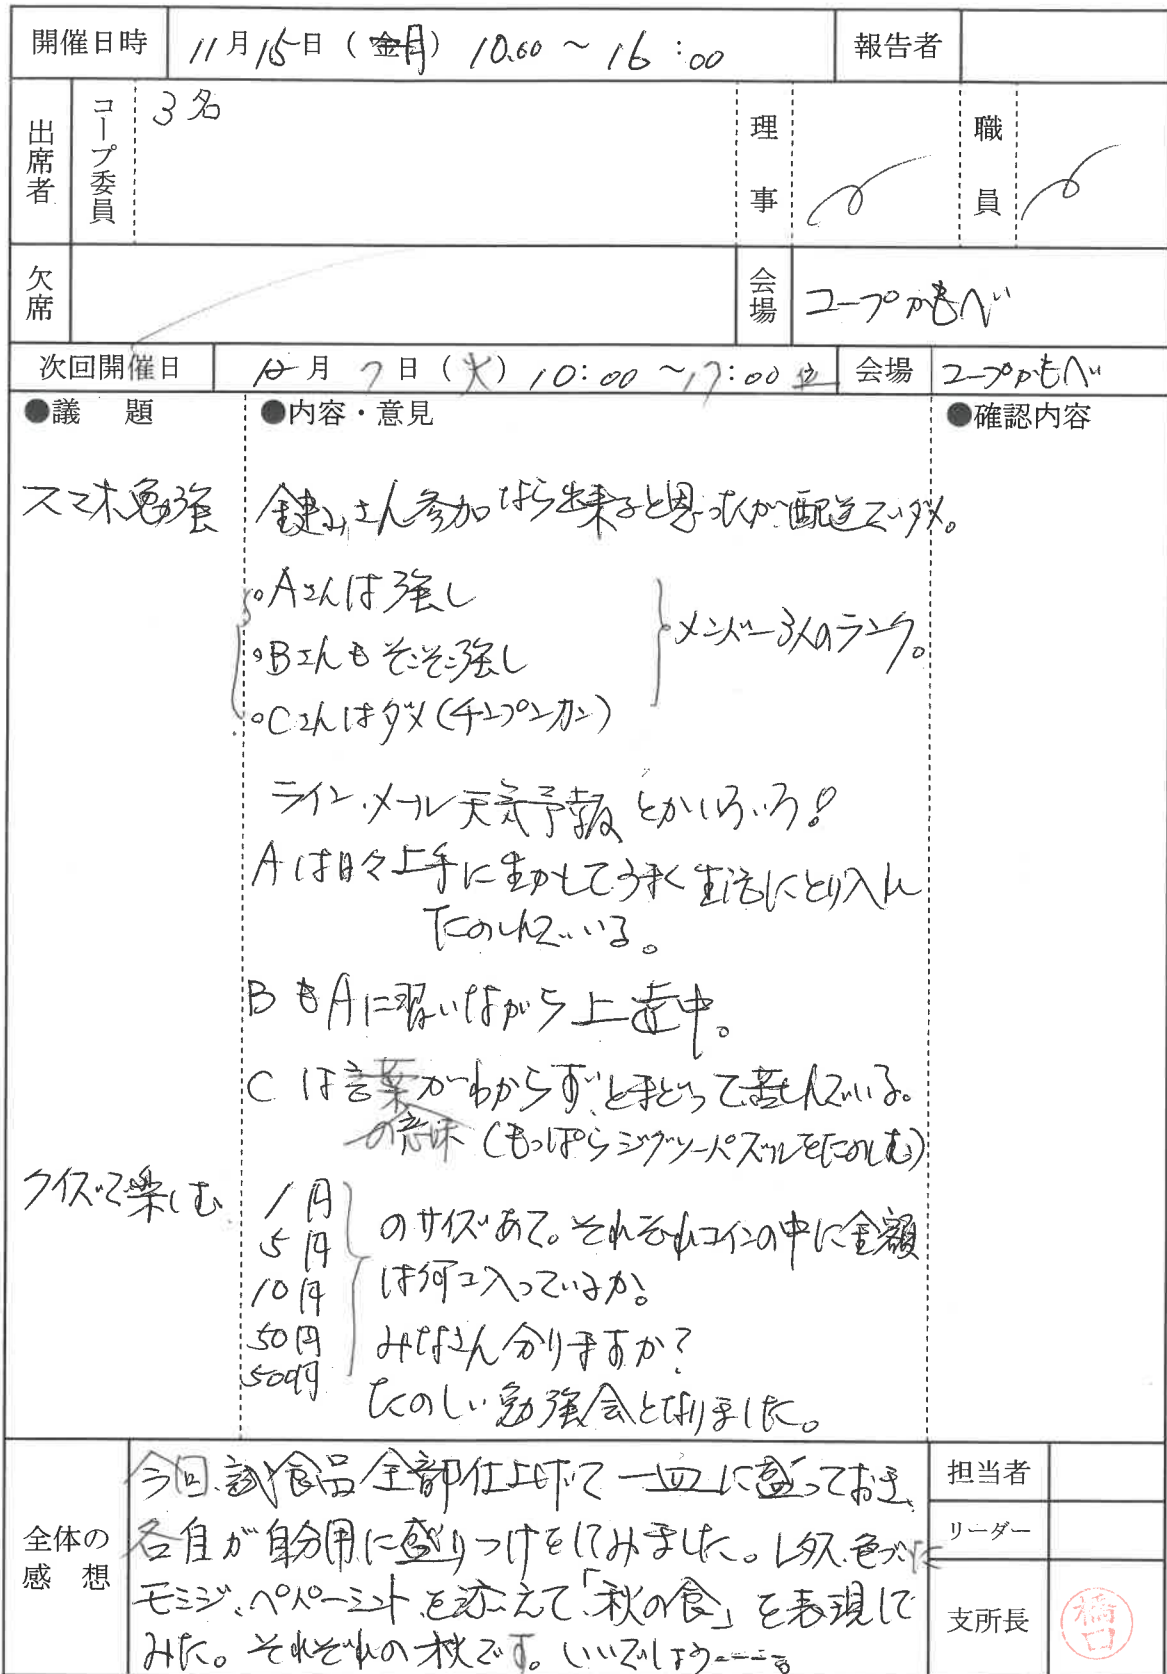 開催日時 11月15日(金月) 10.00～16:00 報告者
出席者 コープ委員 3名 理事 職員
欠席 会場 コープかもべ
次回開催日 12月7日(火) 10:00～17:00 会場 コープかもべ
●議 題 ●内容・意見 ●確認内容
スマホ勉強 さん参加なら出来ると思ったが配送でダメ。
。Aさんは強し
。Bさんもそこそこ強し メンバー3人のランク。
。Cさんはダメ(チンプンカン)
ライン.メール天気予報とかいろいろ!
Aは日々上手に生かしてうまく生活にとり入れ
たのしんでいる。
BもAに習いながら上達中。
Cは言葉がわからず、とまどって苦しんでいる。
の意味(もっぱらジグソーパズルをたのしむ)
クイズで楽しむ
1円
5円 のサイズあて。それぞれコインの中に金額
10円 は何コ入っているか。
50円 みなさん分りますか?
500円 たのしい勉強会となりました。
全体の感想
今回、試食品全部仕上げて一皿に盛っておき、
各自が自分用に盛りつけをしてみました。レタス.色づいた
モミジ、ペパーミントを添えて「秋の食」を表現して
みた。それぞれの秋です。いいでしょう----。
担当者
リーダー
支所長 橋口